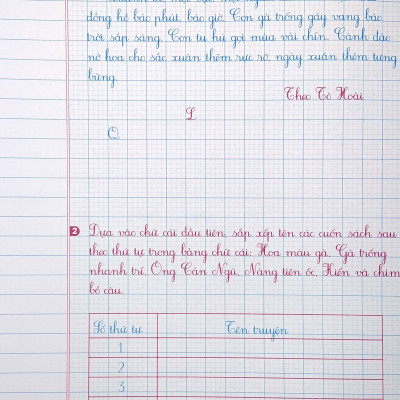 đồng hồ báo phút, báo giờ. Con gà trống gáy vang báo
trời sắp sáng. Con tu hú gọi mùa vải chín. Cành đào
nở hoa cho sắc xuân thêm rực rỡ, ngày xuân thêm tưng
bừng.
Theo Tô Hoài
2 Dựa vào chữ cái đầu tiên, sắp xếp tên các cuốn sách sau
theo thứ tự trong bảng chữ cái: Hoa mào gà, Gà trống
nhanh trí, Ông Cản Ngũ, Nàng tiên ốc, Hiền và chim
bồ câu.
Số thứ tự Tên truyện
1
2
3